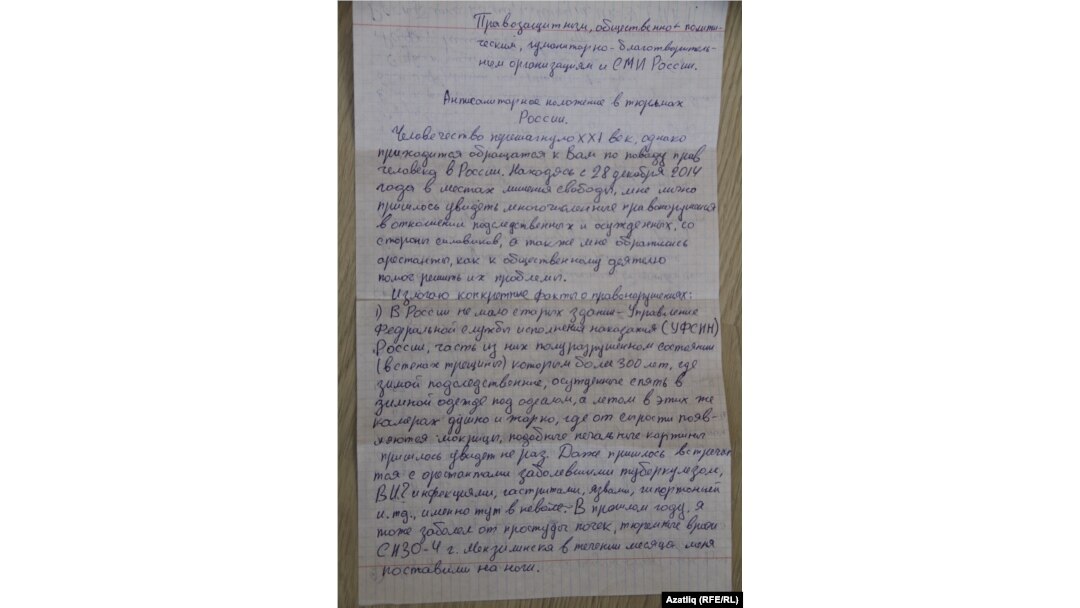 Правозащитным, общественно + полити-
ческим, гуманиторно-благотворитель-
ным организациям и СМИ России.
Антисанитарное положение в тюрьмах
России.
Человечество перешагнуло XXI век, однако
приходится обращатся к Вам по поводу прав
человека в России. Находясь с 28 декабря 2014
года в местах лишения свободы, мне лично
пришлось увидеть многочисленные правонарушения
в отношении подследственных и осужденных, со
стороны силовиков, а так же мне обратились
арестанты, как к общественному деятелю
помог решить их проблемы.
Излогаю конкретные факты о правонорушениях:
1) В России не мало старых здании - Управление
Федральной службы исполнения наказания (УФСИН)
России, часть из них полуразрушенном состоянии
(в стенах трещины) которым более 300 лет, где
зимой подследственные, осужденные спять в
зимной одежде под одеалом, а летом в этих же
камерах душно и жарко, где от сырости появ-
ляются мокрицы, подобные печальные картины
пришлось увидет не раз. Даже пришлось встречат
тся с орестантами заболевшими туберкулезом,
ВИЧ инфекциями, гастритами, язвами, гипортонией
и.тд., именно тут в неволе. - В прошлом году, я
тоже заболел от простуды почек, тюремные врачи
СИЗО-4 г. Мензилинска в течении месяца меня
поставили на ноги.
Azatliq (RFE/RL)